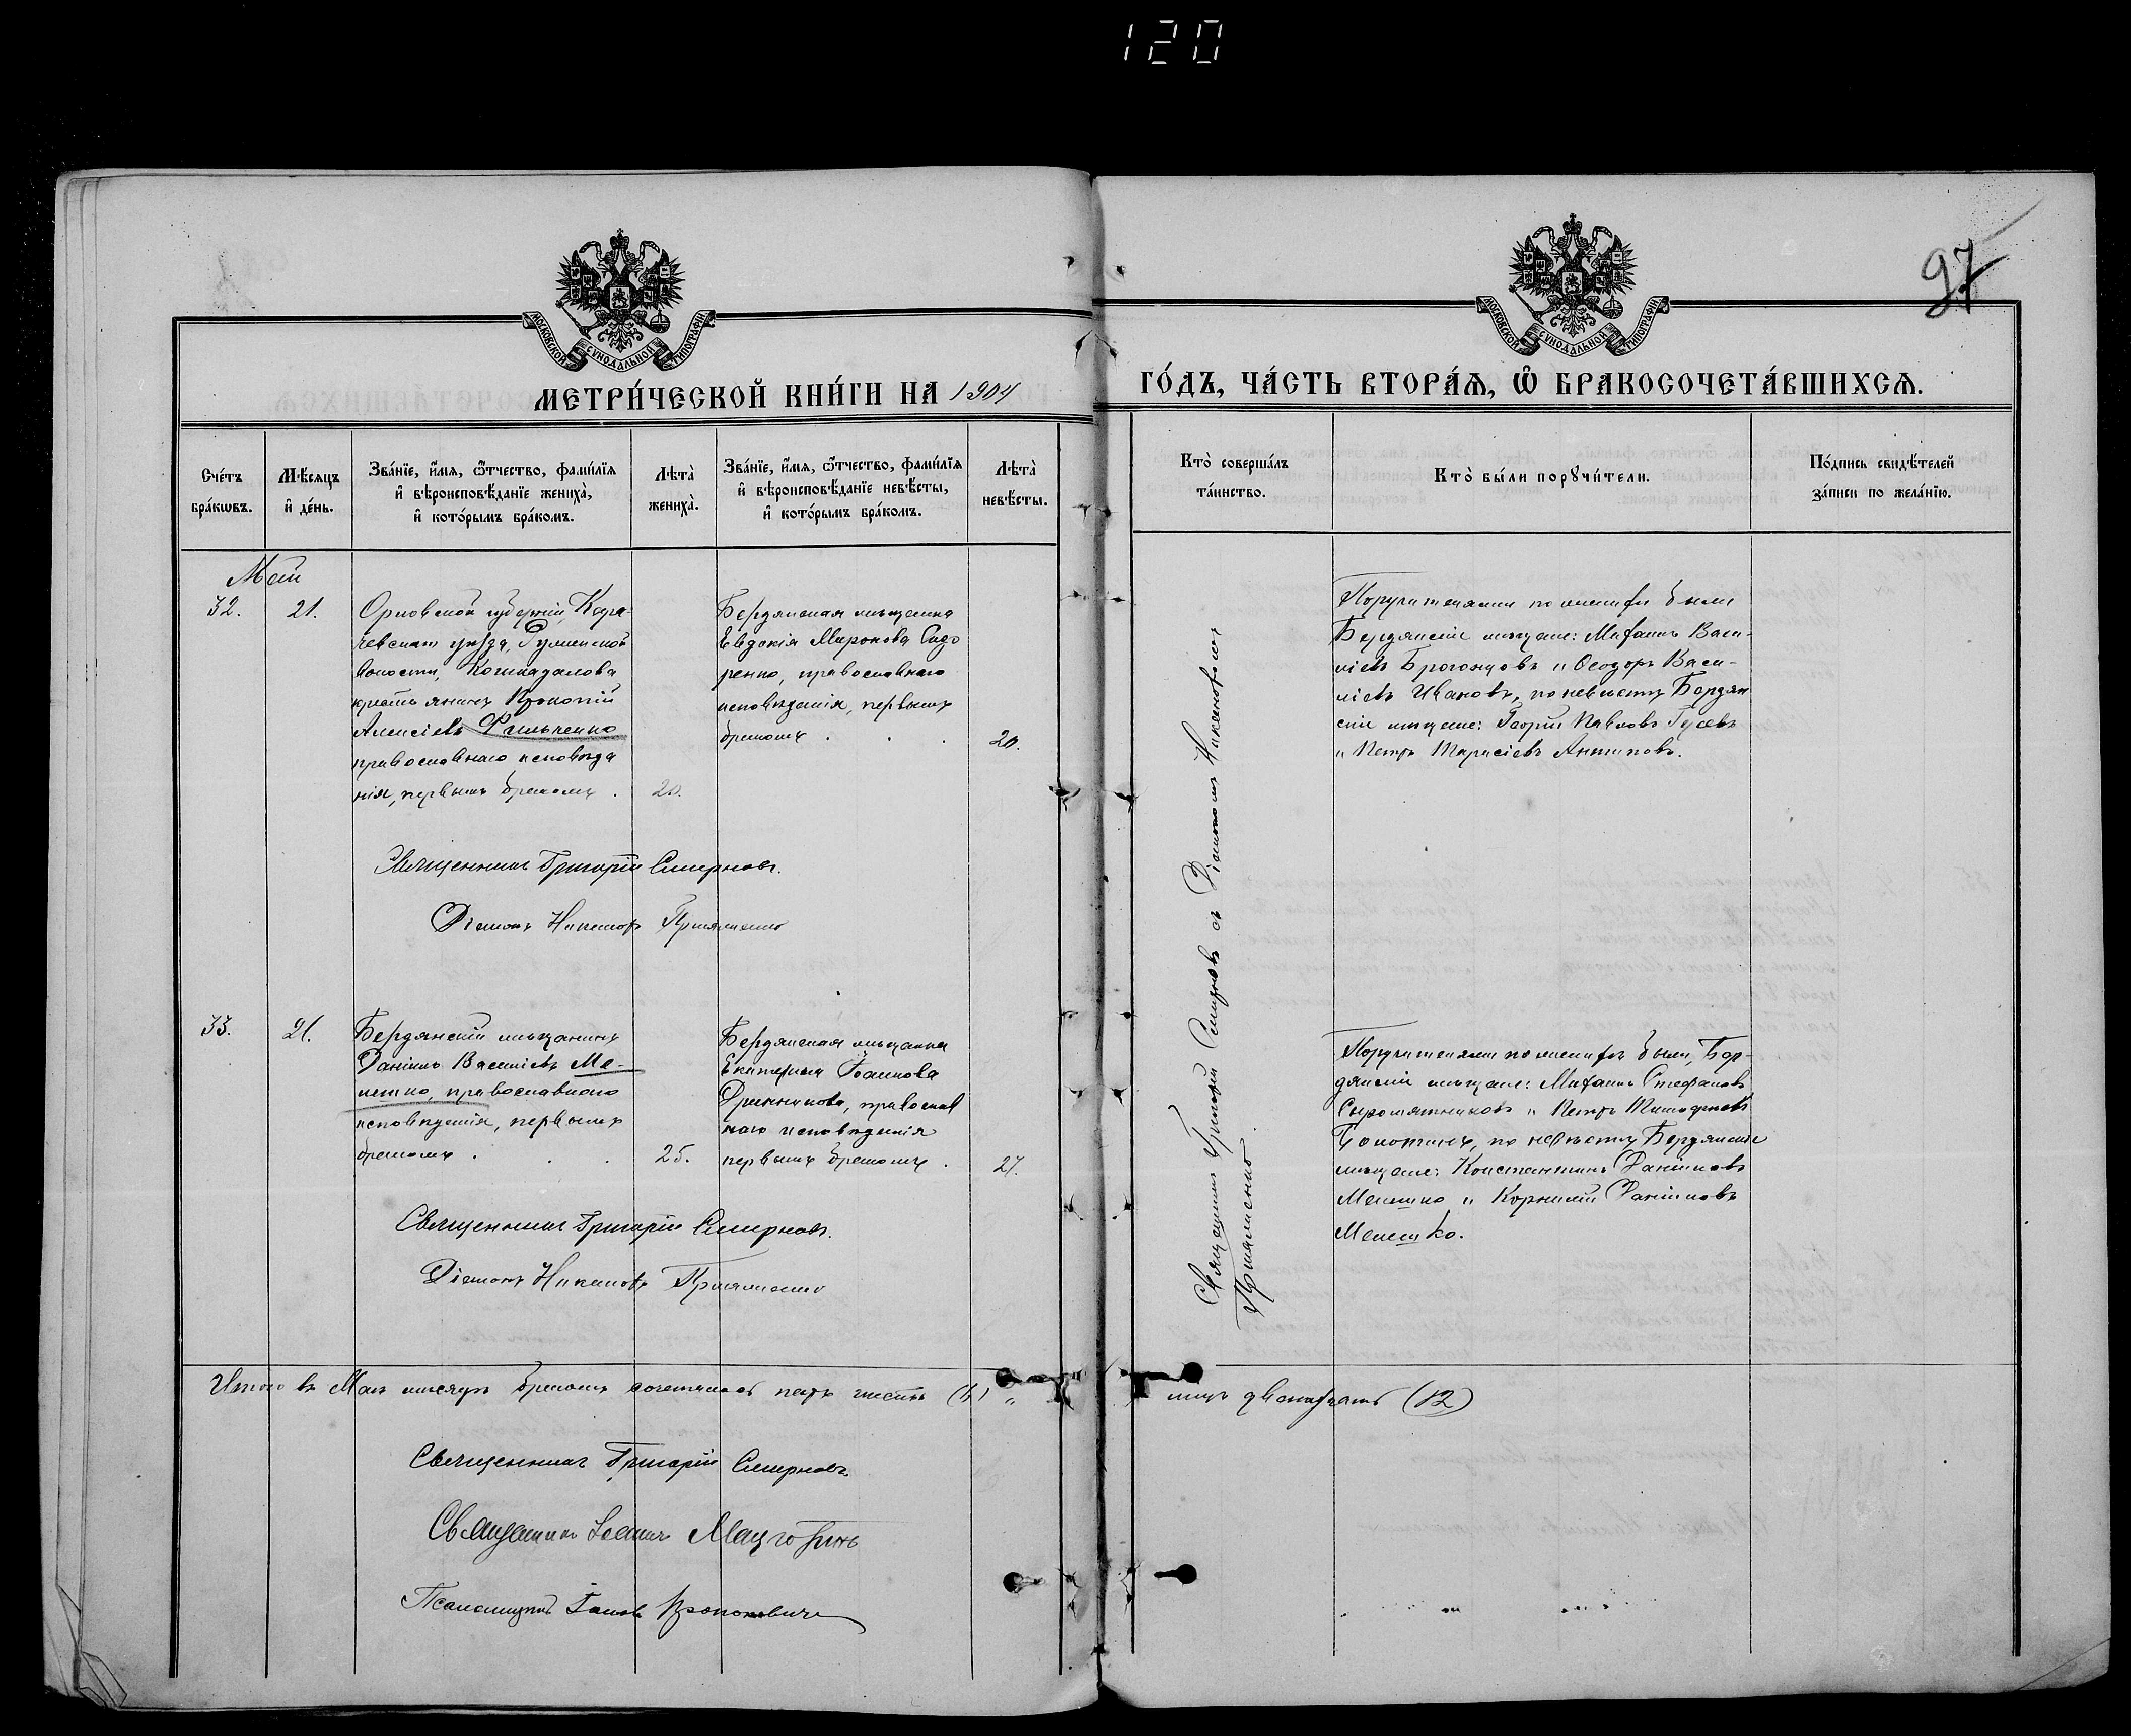 120
97
МОСКОВСКОЙ СѴНОДАЛЬНОЙ ТИПОГРАФІИ
МОСКОВСКОЙ СѴНОДАЛЬНОЙ ТИПОГРАФІИ
МЕТРИ́ЧЕСКОЙ КНИ́ГИ НА 1904
ГО́ДЪ, ЧА́СТЬ ВТОРА́Ѧ, Ѡ҆ БРАКОСОЧЕТА́ВШИХСѦ.
Сче́тъ бра́кѡвъ.
Мѣ́сяцъ и҆ де́нь.
Зва́нїе, и҆́мѧ, ѻ҆́тчество, фами́лїѧ и҆ вѣроисповѣ́данїе жениха̀, и҆ кото́рымъ бра́комъ.
Лѣта̀ жениха̀.
Зва́нїе, и҆́мѧ, ѻ҆́тчество, фами́лїѧ и҆ вѣроисповѣ́данїе невѣ́сты, и҆ кото́рымъ бра́комъ.
Лѣта̀ невѣ́сты.
Кто̀ соверша́лъ та́инство.
Кто̀ бы́ли порꙋчи́тели.
По́дпись свидѣ́телей за́писи по жела́нїю.
Май
32.
21.
Орловской губерніи, Кара-
чевскаго уѣзда,
волости,
крестьянинъ Прокопій
Алексіевъ Фильченко
православнаго исповѣда
нія, первымъ бракомъ .
20.
Бердянская мѣщанка
Евдокія Миронова Сидо
ренко, православнаго
исповѣданія, первымъ
бракомъ . . .
20.
Поручителями по женихѣ были
Бердянскіе мѣщане: Михаилъ Васи-
ліевъ и Ѳеодоръ Васи-
ліевъ Ивановъ, по невѣстѣ Бердян
скіе мѣщане: Георгій Павловъ Гусевъ
и Петръ Тарасіевъ Антиповъ.
Священникъ Григорій Смирновъ.
Діаконъ Никаноръ
33.
21.
Бердянскій мѣщанинъ
Даніилъ Василіевъ Ме-
лешко, православнаго
исповѣданія, первымъ
бракомъ . . .
25.
Бердянская мѣщанка
Екатерина Іоаннова
православ
наго исповѣданія
первымъ бракомъ .
27.
Поручителями по женихѣ были, Бер-
дянскіе мѣщане: Михаилъ Стефановъ
Сыромятниковъ и Петръ Тимофеевъ
по невѣстѣ Бердянскіе
мѣщане: Константинъ Даніиловъ
Мелешко и Корнилій Даніиловъ
Мелешко.
Священникъ Григорій Смирновъ.
Діаконъ Никаноръ
Священникъ Григорій Смирновъ съ Діакономъ Никаноромъ
Итого въ Маѣ мѣсяцѣ бракомъ сочеталось паръ шесть (6) „
лицъ двенадцать (12)
Священникъ Григорій Смирновъ
Священникъ Іоаннъ
Псаломщикъ Прокоповичъ